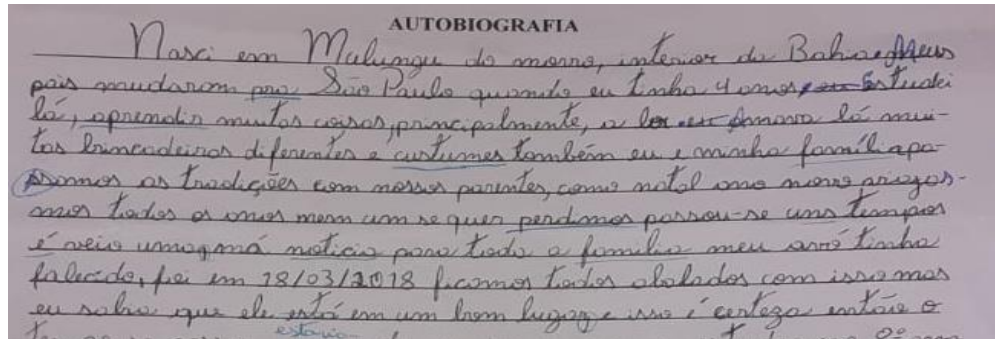 AUTOBIOGRAFIA
Nasci em Mulungu do morro, interior da Bahia Meus
pais mudarom pro São Paulo quando eu tinha 4 anos, estudei
lá, aprendir muitas coisas, principalmente, a ler amava lá mui-
tas brincadeiras diferentes e custumes também eu e minha família pa-
ssamos as tradições com nossos parentes, como natal ano novo
mos todos os anos nem um se quer perdimos passou-se uns tempos
é veio uma má noticia para toda a família meu avô tinha
falecido, foi em 18/03/2018 ficamos todos abalados com isso mas
eu sabia que ele está em um bom lugar e isso é certeza então o
estaria
9º ano